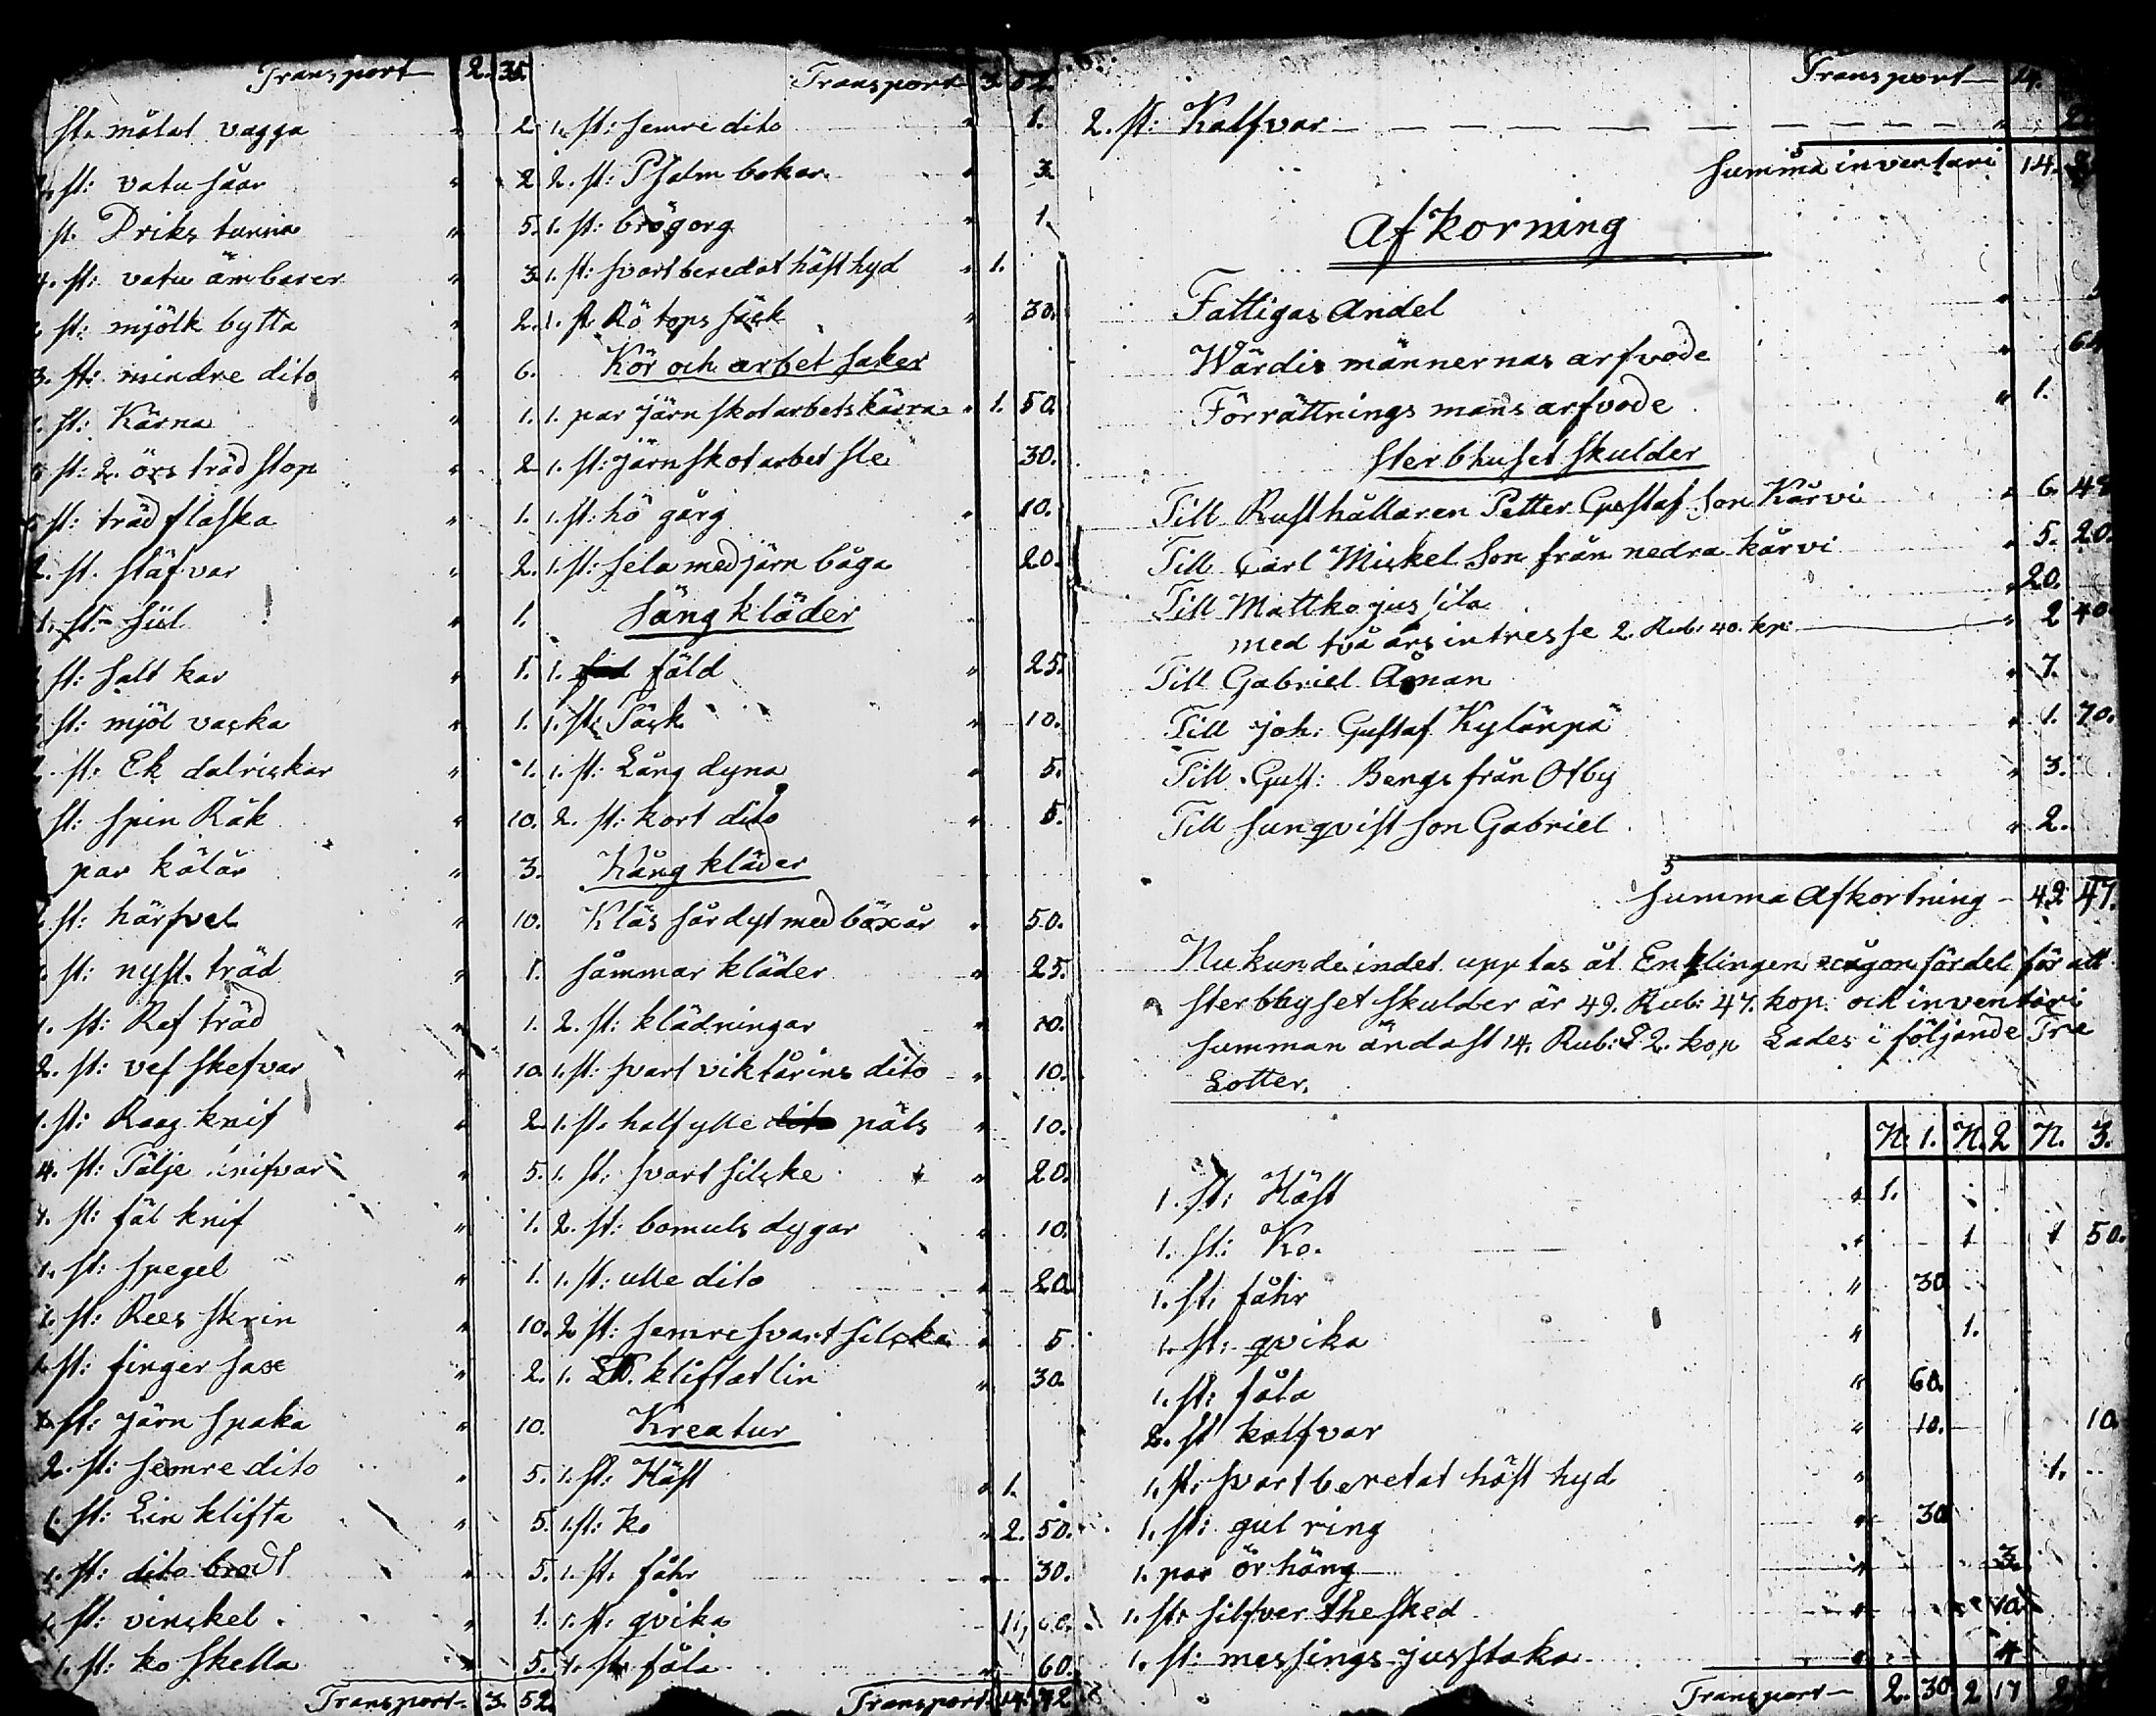 Transport 2. 35.
st. målat vagga " 2.
st: vatu såar " 2
st. Driks tunna " 5.
4. st: vatu ämbarer " 3
st: mjölk bytta " 2.
3. st: mindre dito " 6.
1. st: Kärna " 1.
st: 2. örs träd stop " 2
st: träd flaska " 1.
2. st. stäfvar " 2.
1. st. siil " 1.
st: salt kar " 1.
st: mjöl vacka " 1.
st: Ek dalriskar " 1.
st: spin Råk " 10.
par kålår " 3.
st: härfvel " 10.
st: nyst. träd " 1.
1. st: Ref träd " 1.
2. st: vef skefvar " 10.
1. st: Raag knif " 2.
4. st: Tälje knifvar " 5.
1. st: fäl knif " 1.
1. st: spegel " 1.
1. st: Rees skrin " 10.
1. st: finger saxe " 2.
st: järn spaka " 10.
2. st: semre dito " 5.
1. st: Lin klifta " 5.
1. st: dito brodt " 5.
1. st: vinckel " 1.
1. st: ko skella " 5.
Transport 3. 52.
Transport 3 52.
1. st: semre dito " 1.
2. st: Psalm bokar " 3.
1. st: brögorg " 1.
1. st: svart beredat häst hyd " 1.
1. st Rö tops säck " 30.
Kör och arbet saker
1. par järn skot arbets kärra " 1. 50.
1. st: järn skot arbet sle 30.
1. st: hö gårg " 10.
1. st: sela med järn båga 20.
Säng kläder
1. fäld " 25.
1. st: Säck " 10.
1. st: Lång dyna " 5.
2. st: kort dito " 5.
Kång kläder
Kläs sårdyt med böxår " 50.
såmmar kläder " 25.
2. st: klädningar " 10.
1. st: svart viktårins dito " 10.
1. st. half ylle dito päls " 10.
1. st: svart silcke " 20.
2. st: bomuls dygar " 10.
1. st: ulle dito " 20.
2 st: semre svart silcke " 5
1. LW. kliftat lin " 30.
Kreatur
1. st: Häst " 1.
1. st: ko " 2. 50.
1. st. fåhr " 30.
1. st: qvika
1. st: fåla " 60.
Transport 14. 12
Transport 14.
2. st: Kalfvar "
Summa inventari 14.
Afkorning
Fattigas Andel "
Wärdis männernas arfvode "
Förrättnings mans arfvode " 1.
Sterbhuset skulder
Till Rusthållaren Petter Gustaf Son Kärvi " 6.
Till Carl Mickel Son från nedra kärvi " 5. 20.
Till Mattko jussila " 20.
med två års intresse 2. Rub: 40. kp: " 2 40
Till Gabriel Åman " 7.
Till joh: Gustaf Kylänpä " 1. 70.
Till Gust: Bengs från Otby " 3.
Till sunqvist son Gabriel " 2.
Summa Afkortning 49 47.
Nu kunde indet upp tas åt Enklingen någon fördel för att
sterbhyset skulder är 49. Rub: 47. kop. och inventari
summan ändast 14. Rub: 22. kop Lades i följande Tre
Lotter.
N: 1. N. 2 N. 3.
1. st: Häst " 1.
1. st: Ko. " 1 1 50.
1. st. fåhr " 30
1. st: qvika " 1.
1. st: fåla " 60.
2. st kalfvar " 10. 10
1. st: svart beretat häst hyd " 1.
1. st: gul ring " 30
1. par ör häng " 3.
1. st: silfver the sked " 10
1. st: messings jusstaka " 4
Transport 2. 30 2 17 2